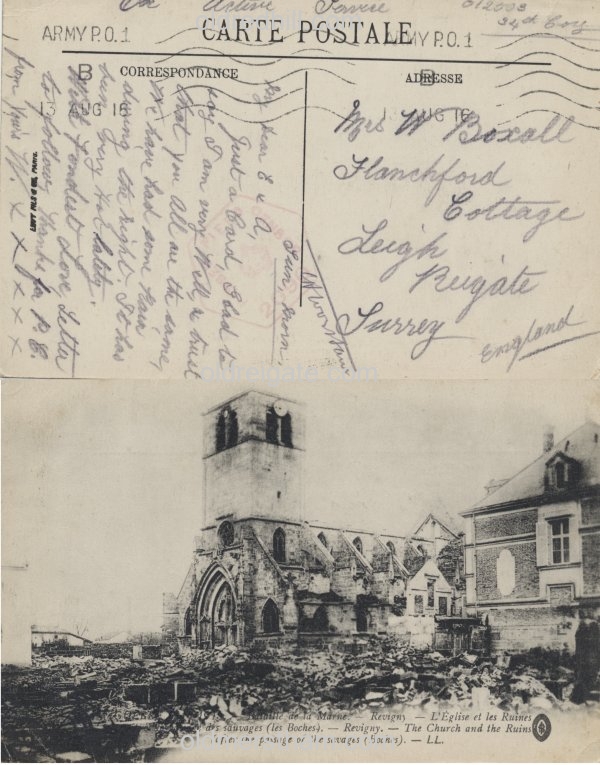 On Active Service
34th Coy
ARMY P.O. 1
CARTE POSTALE
ARMY P.O. 1
B
CORRESPONDANCE
ADRESSE
B
13 AUG 16
13 AUG 16
My Dear E & A,
Sun. Morn.
Just a Card, Glad to
say I am very Well, & trust
that you All are the same,
We have had some Rain
during the night. It has
been Very Hot lately.
With fondest Love Letter
to follow, thanks for P.C.
from Yours W. x x x x x x
Mrs W Boxall
Flanchford
Cottage
Leigh
Reigate
Surrey
England
LEVY FILS & Cie, PARIS.
Bataille de la Marne. — Revigny — L'Église et les Ruines
des sauvages (les Boches). — Revigny. — The Church and the Ruins
after the passage of the savages (Boches). — LL.